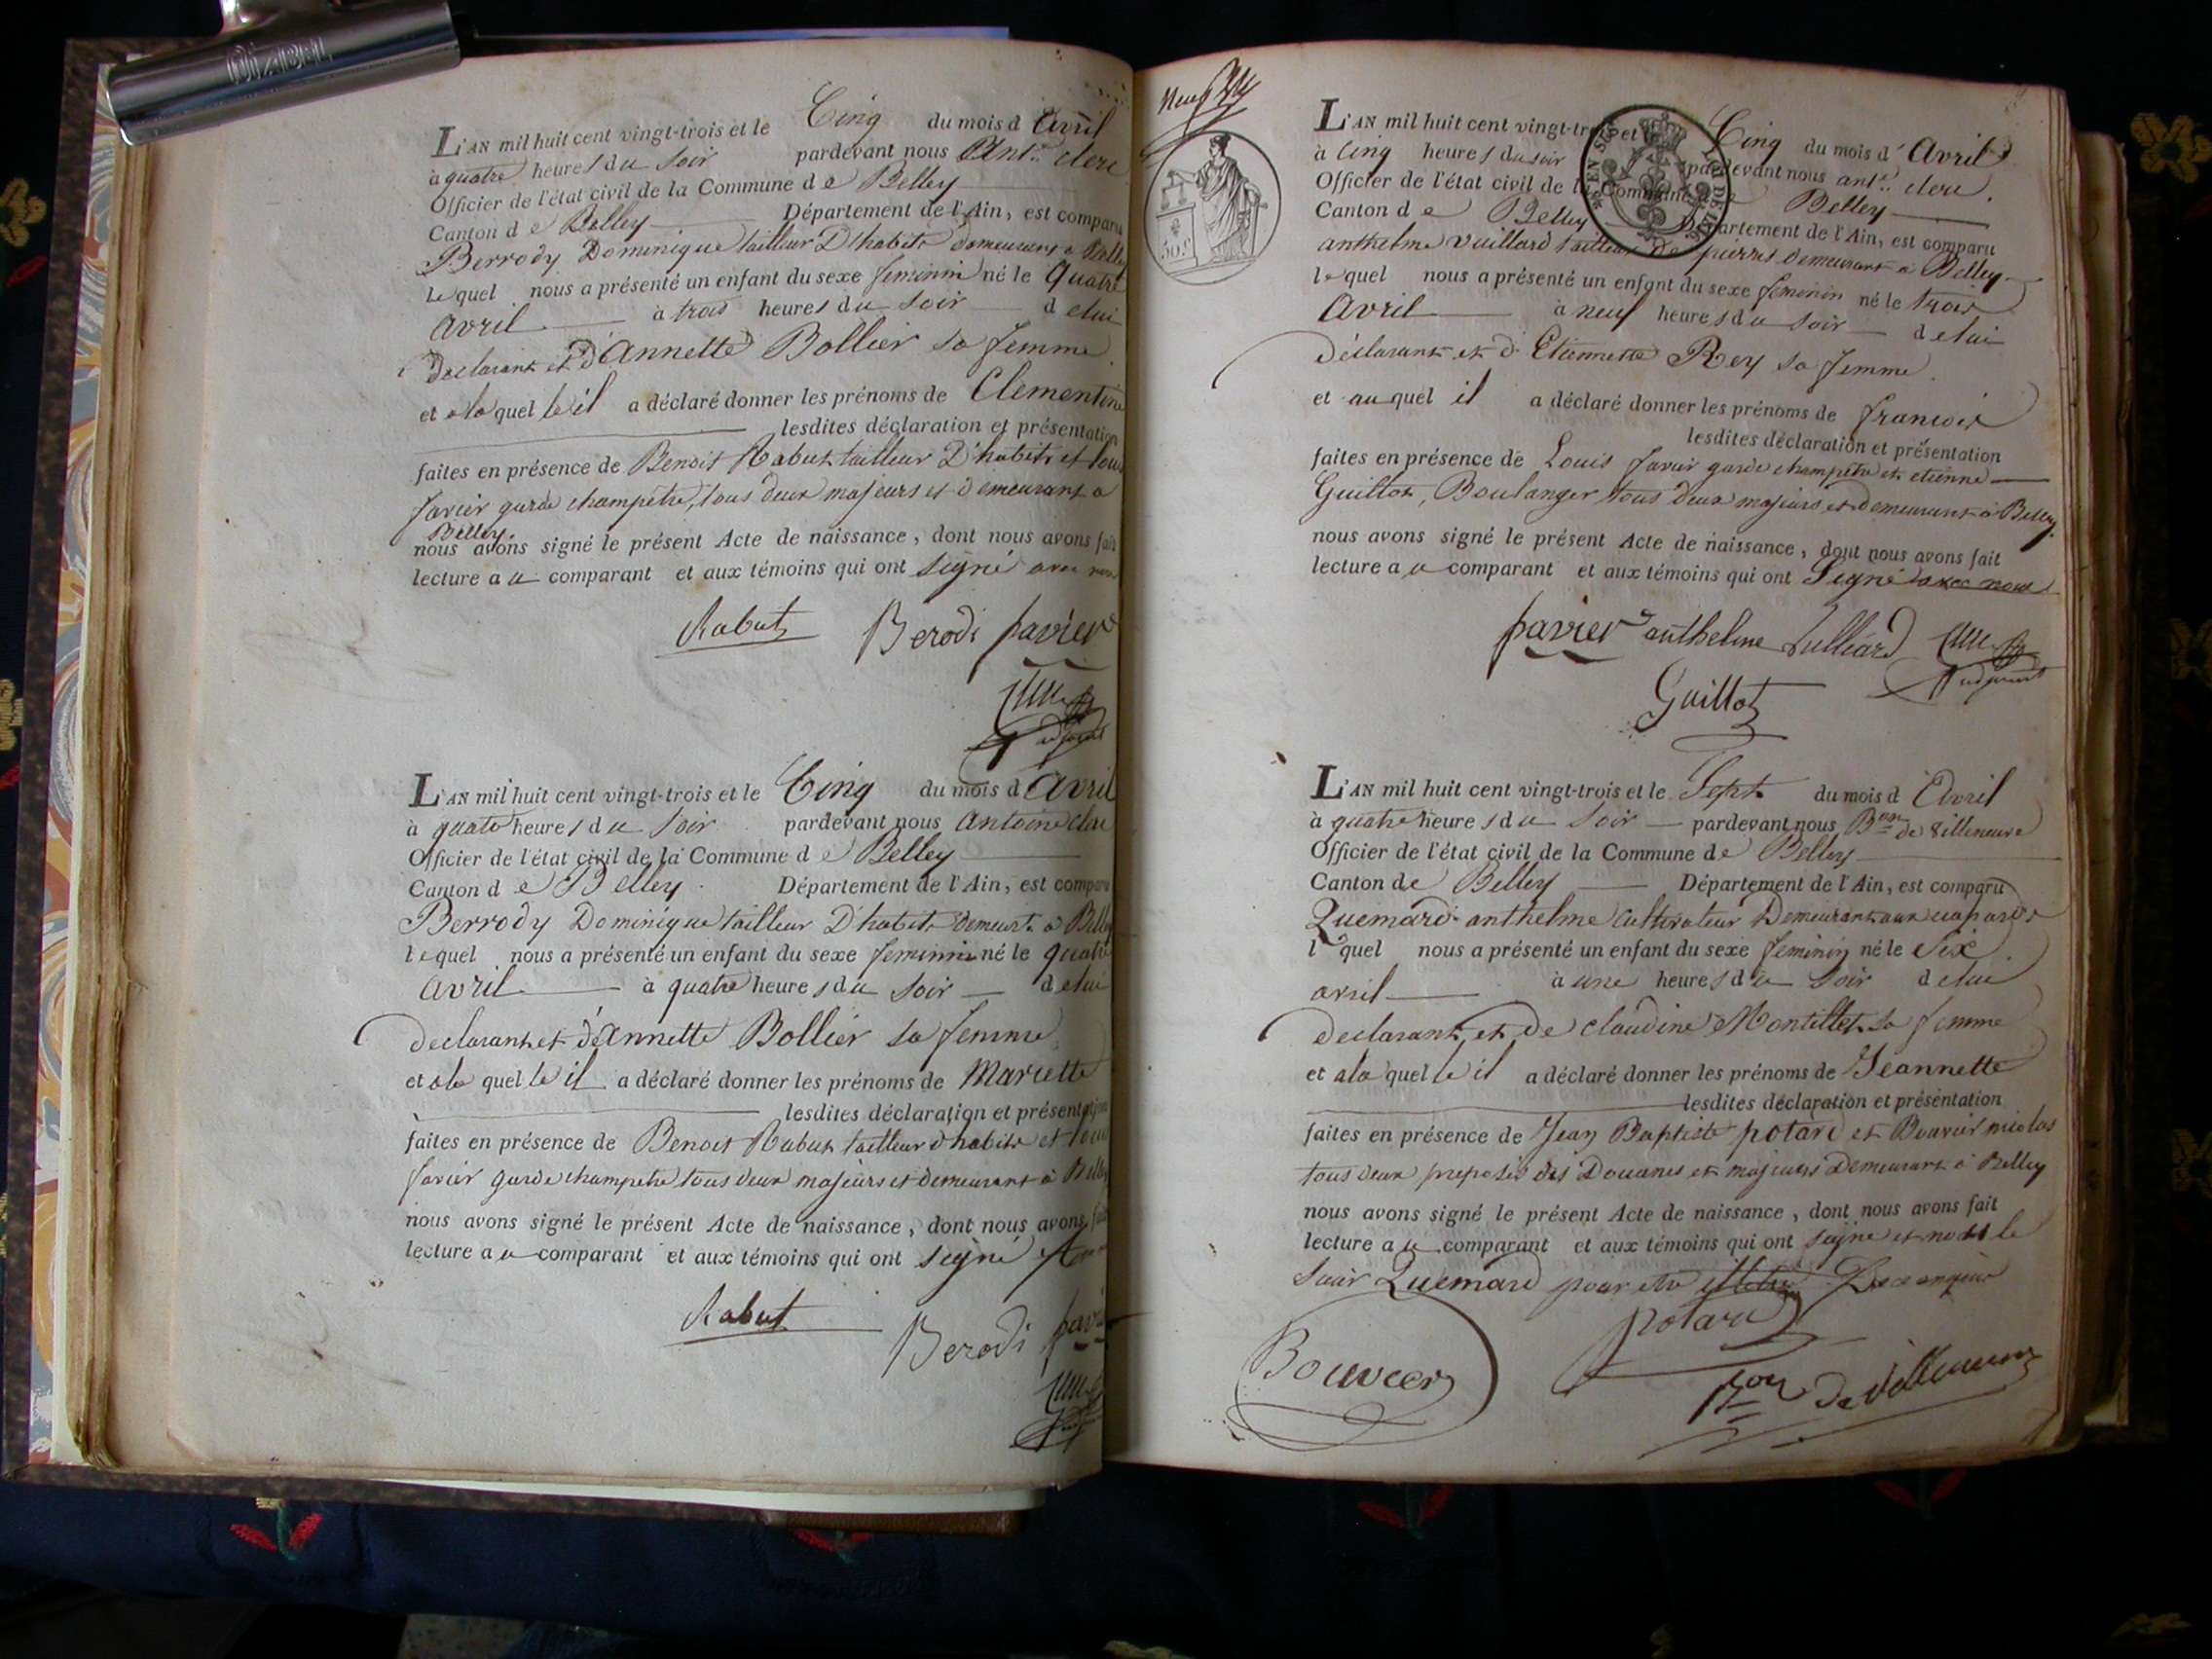 DIABEL
L'AN mil huit cent vingt-trois et le Cinq du mois d Avril
à quatre heures du soir pardevant nous Ant.ne clerc
Officier de l'état civil de la Commune de Belley
Canton de Belley Département de l'Ain, est comparu
Berrody Dominique tailleur D'habits demeurant a Belley
lequel nous a présenté un enfant du sexe feminin né le quatre
avril à trois heures du soir de lui
declarant et d'Annette Bollier sa femme
et a laquelle il a déclaré donner les prénoms de Clementine
lesdites déclaration et présentation
faites en présence de Benoit Rabut tailleur D'habits et Louis
favier garde champetre, tous deux majeurs et demeurant a
Belley.
nous avons signé le présent Acte de naissance, dont nous avons fait
lecture au comparant et aux témoins qui ont signé avec nous
Rabut Berodi favier
adjoint
L'AN mil huit cent vingt-trois et le Cinq du mois d Avril
à quatre heures du soir pardevant nous Antoine clerc
Officier de l'état civil de la Commune de Belley
Canton de Belley. Département de l'Ain, est comparu
Berrody Dominique tailleur D'habits demeurt. a Belley
lequel nous a présenté un enfant du sexe feminin né le quatre
avril à quatre heures du soir de lui
declarant et d'annette Bollier sa femme
et a laquelle il a déclaré donner les prénoms de Mariette
lesdites déclaration et présentation
faites en présence de Benoit Rabut tailleur d'habits et Louis
favier garde champetre tous deux majeurs et demeurant à Belley
nous avons signé le présent Acte de naissance, dont nous avons fait
lecture au comparant et aux témoins qui ont signé
Rabut Berodi favier
Neuf
50 c.
L'AN mil huit cent vingt-trois et le Cinq du mois d'Avril
à cinq heures du soir pardevant nous ant.ne clerc
Officier de l'état civil de la Commune de Belley
Canton de Belley Département de l'Ain, est comparu
anthelme vuillard tailleur de pierres demeurant a Belley
lequel nous a présenté un enfant du sexe feminin né le trois
Avril à neuf heures du soir de lui
déclarant et d'Etiennette Rey sa femme
et auquel il a déclaré donner les prénoms de francois
lesdites déclaration et présentation
faites en présence de Louis favier garde champetre et etienne
Guillot, Boulanger tous deux majeurs et demeurant à Belley.
nous avons signé le présent Acte de naissance, dont nous avons fait
lecture au comparant et aux témoins qui ont signé avec nous
favier anthelme Vulliard
adjoint
Guillot
L'AN mil huit cent vingt-trois et le Sept du mois d Avril
à quatre heures du soir pardevant nous Bon de Villeneuve
Officier de l'état civil de la Commune de Belley
Canton de Belley Département de l'Ain, est comparu
Quemard anthelme cultivateur Demeurant aux
lequel nous a présenté un enfant du sexe feminin né le Six
avril à une heures du soir de lui
declarant et de claudine Montillet sa femme
et a laquelle il a déclaré donner les prénoms de Jeannette
lesdites déclaration et présentation
faites en présence de Jean Baptiste potard et Bouvier nicolas
tous deux preposés des Douanes et majeurs Demeurant à Belley
nous avons signé le présent Acte de naissance, dont nous avons fait
lecture au comparant et aux témoins qui ont signé et non le
sieur Quemard pour etre illetré
potard
Bouvier
Bon de Villeneuve